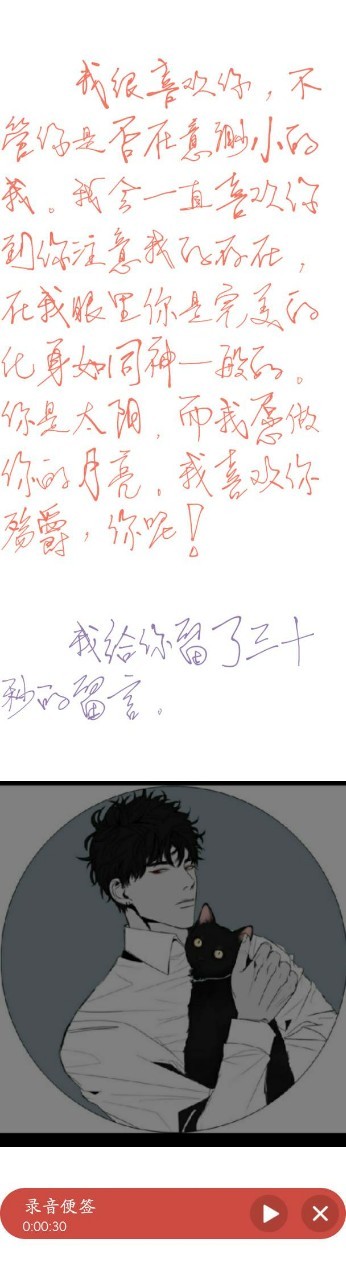 我很喜欢你，不
管你是否在意渺小的
我。我会一直喜欢你
到你注意我的存在，
在我眼里你是完美的
化身如同神一般的。
你是太阳，而我愿做
你的月亮。我喜欢你
殇爵，你呢！
我给你留了三十
秒的留言。
录音便签
0:00:30